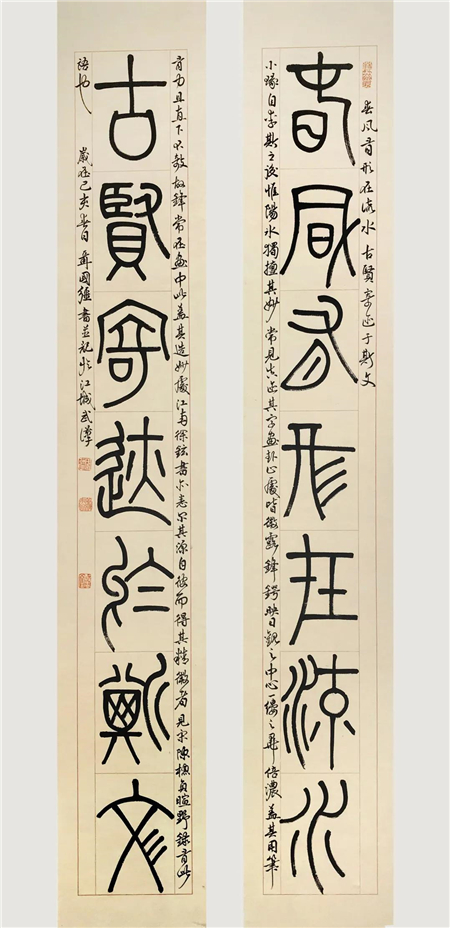 春风有形在流水 古賢寄迹于斯文
春風有形在流水
小篆自李斯之後惟陽水獨擅其妙 常見真迹其字畫起止處皆微露鋒鍔映日觀之中心一縷之墨倍濃蓋其用筆
有力且直下不欹故鋒常在畫中此蓋其造妙處江南徐鉉書亦悉尔其源自彼而得其精微者 見宋陳槱負暄野錄有此
古賢寄迹於斯文
語也 歲在己亥春日 國強書並記於江城武漢